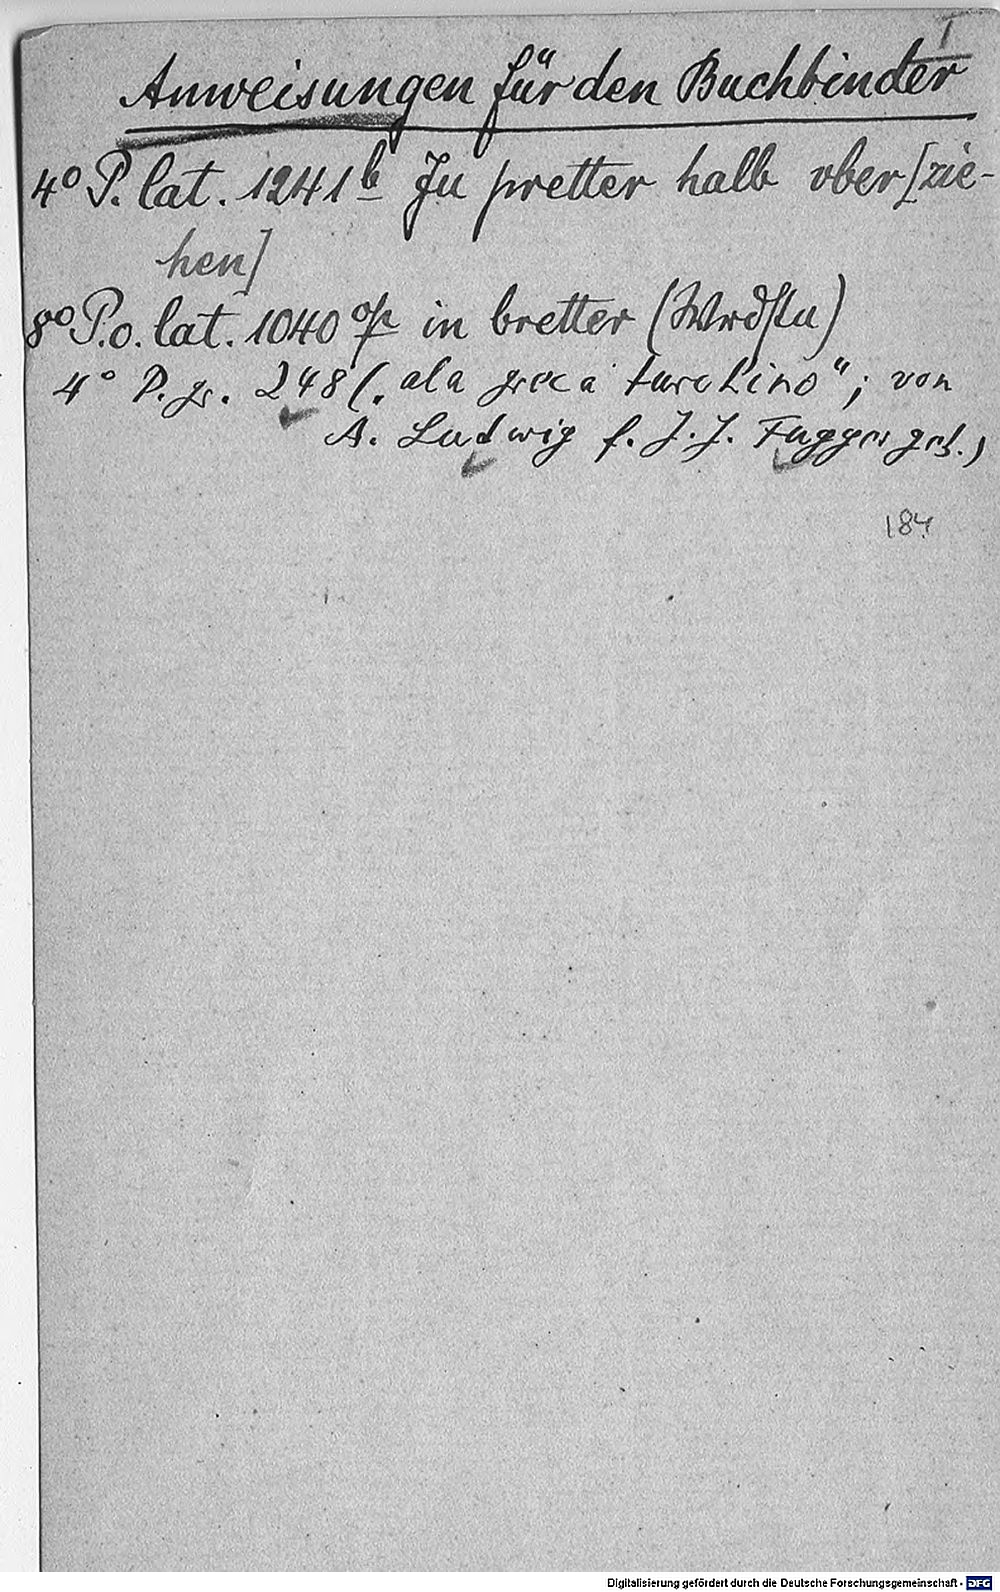 I
Anweisungen für den Buchbinder
4° P. lat. 1241b In pretter halb vber[zie-
hen]
8° P.o. lat. 1040 in bretter
4° P. gr. 248 („ala greca turchino"; von
A. Ludwig f. J. J. Fugger geb.)
184
Digitalisierung gefördert durch die Deutsche Forschungsgemeinschaft - DFG